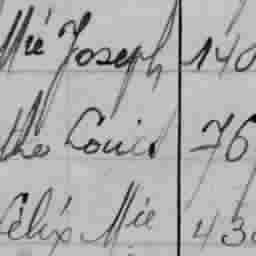 Mié Joseph 140
the Louis 76
Félix Mie 43